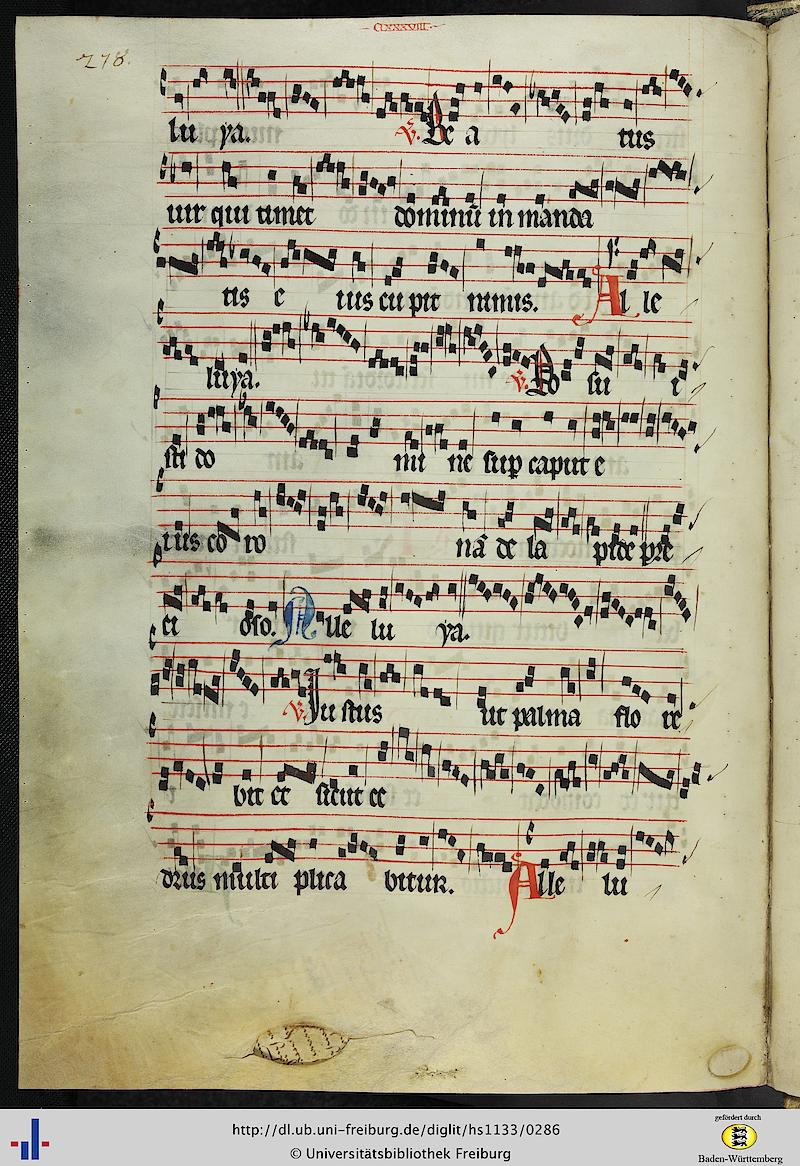 CLXXXVIII
278.
lu ya. V. Be a tus
uir qui timet dominū in manda
tis e ius cu pit nimis. Al le
luya. V. Po su i
sti do mi ne sup caput e
ius co ro nā de la pide pre
ci oso. Alle lu ya.
V. Ju stus ut palma flo re
bit et sicut ce
drus multi plica bitur. Alle lu
http://dl.ub.uni-freiburg.de/diglit/hs1133/0286
© Universitätsbibliothek Freiburg
gefördert durch
Baden-Württemberg